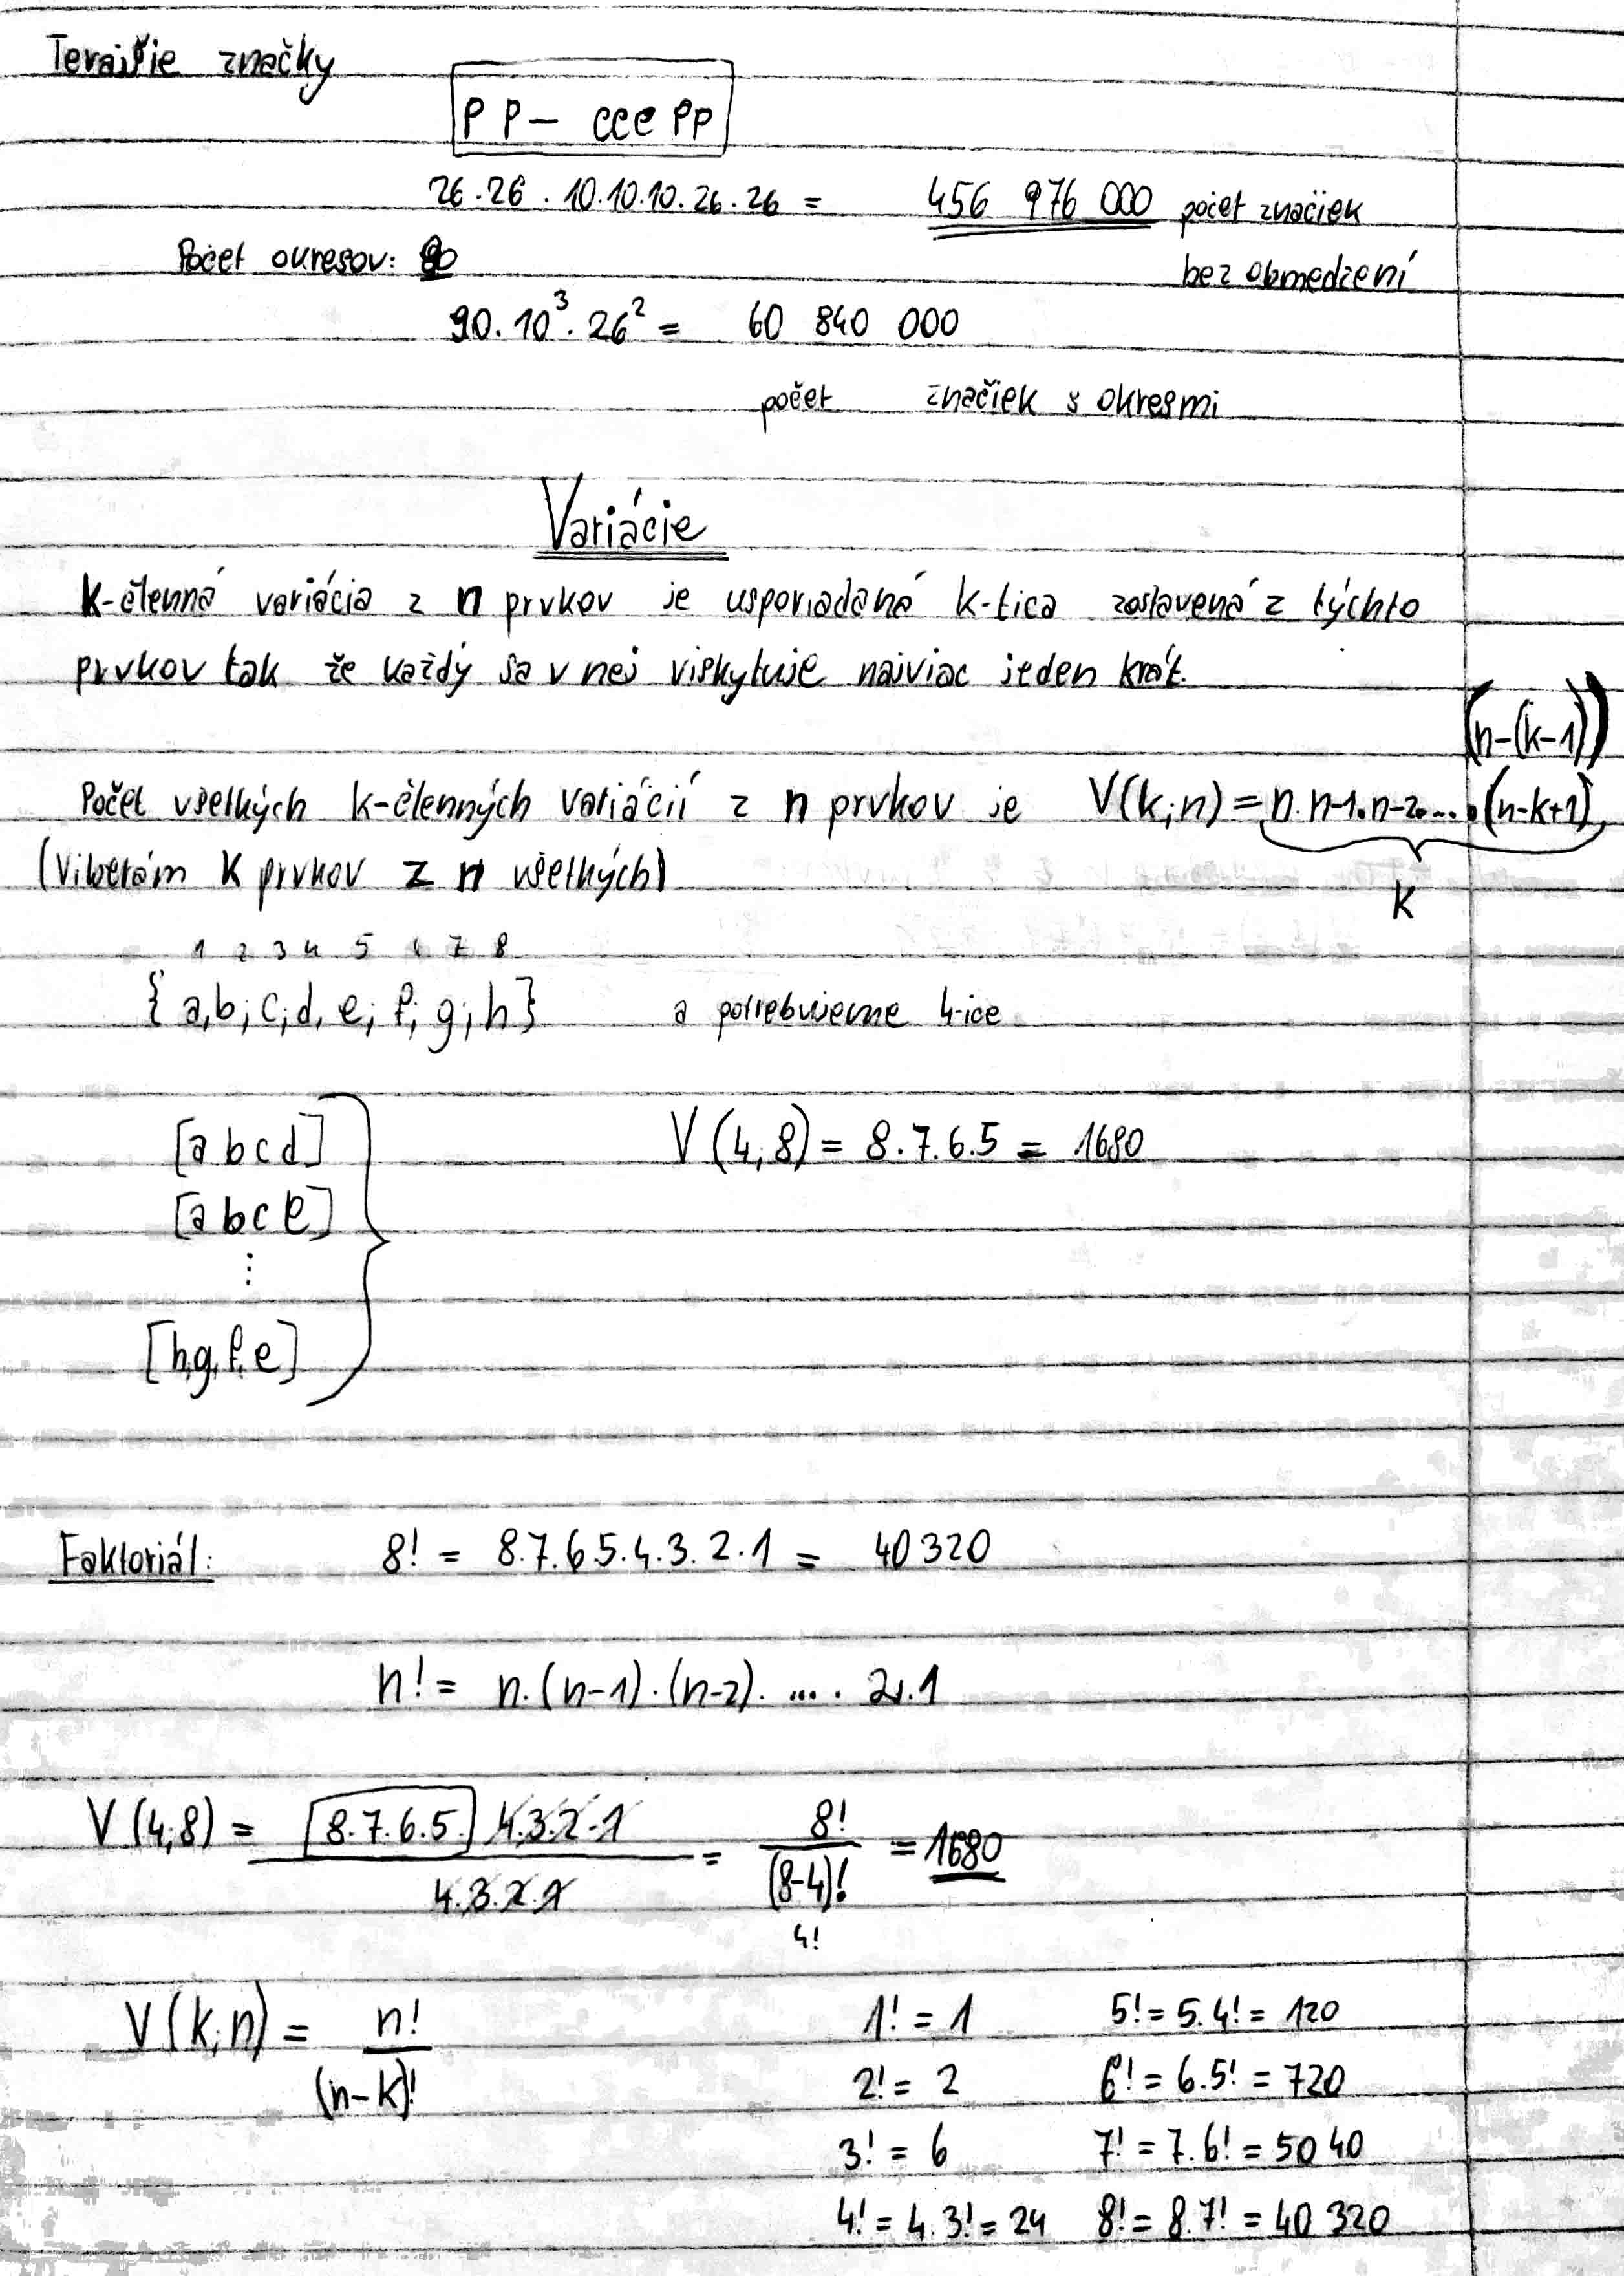 Terajšie značky
PP – CCC PP
26.26.10.10.10.26.26 = 456 976 000 počet značiek
Počet okresov: 90
bez obmedzení
90.10³.26² = 60 840 000
počet značiek s okresmi
Variácie
k-členná variácia z n prvkov je usporiadaná k-tica zostavená z týchto
prvkov tak že každý sa v nej viskytuje najviac jeden krát.
(n-(k-1))
Počet všetkých k-členných variácií z n prvkov je V(k;n) = n.n-1.n-2. ... .(n-k+1)
(Viberám k prvkov z n všetkých)
k
1 2 3 4 5 6 7 8
{a,b;c;d,e;f;g;h} a potrebujeme 4-ice
[a b c d]
V(4,8) = 8.7.6.5 = 1680
[a b c e]
⋮
[h,g,f,e]
Faktoriál: 8! = 8.7.6.5.4.3.2.1 = 40320
n! = n.(n-1).(n-2). .... 2.1
V(4;8) = 8.7.6.5. 4.3.2.1 / 4.3.2.1 = 8! / (8-4)! = 1680
4!
V(k;n) = n! / (n-k)!
1! = 1 5! = 5.4! = 120
2! = 2 6! = 6.5! = 720
3! = 6 7! = 7.6! = 5040
4! = 4.3! = 24 8! = 8.7! = 40 320